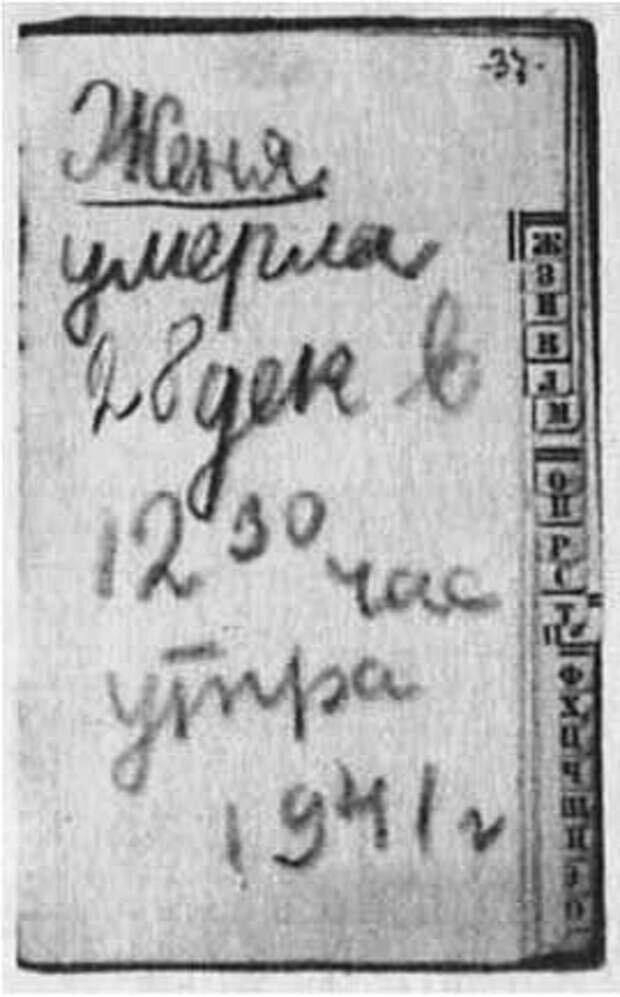 -37-
Женя
умерла
28 дек в
12 30 час
утра
1941 г
Ж
З
И
К
Л
М
О
П
Р
С
Т
Ф
Х
Ц
Ч
Щ